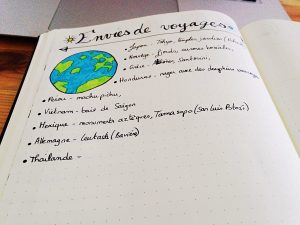 Envies de voyages
• Japon : Tokyo, temples, jardins
• Norvège : fjords, aurores boréales,
• Grèce - Santorini,
• Honduras - nager avec des dauphins
• Pérou - machu pichu,
• Vietnam - baie de
• Mexique - monuments aztèques, Tamasopo (San Luis Potosi)
• Allemagne - (Bavière)
• Thaïlande -